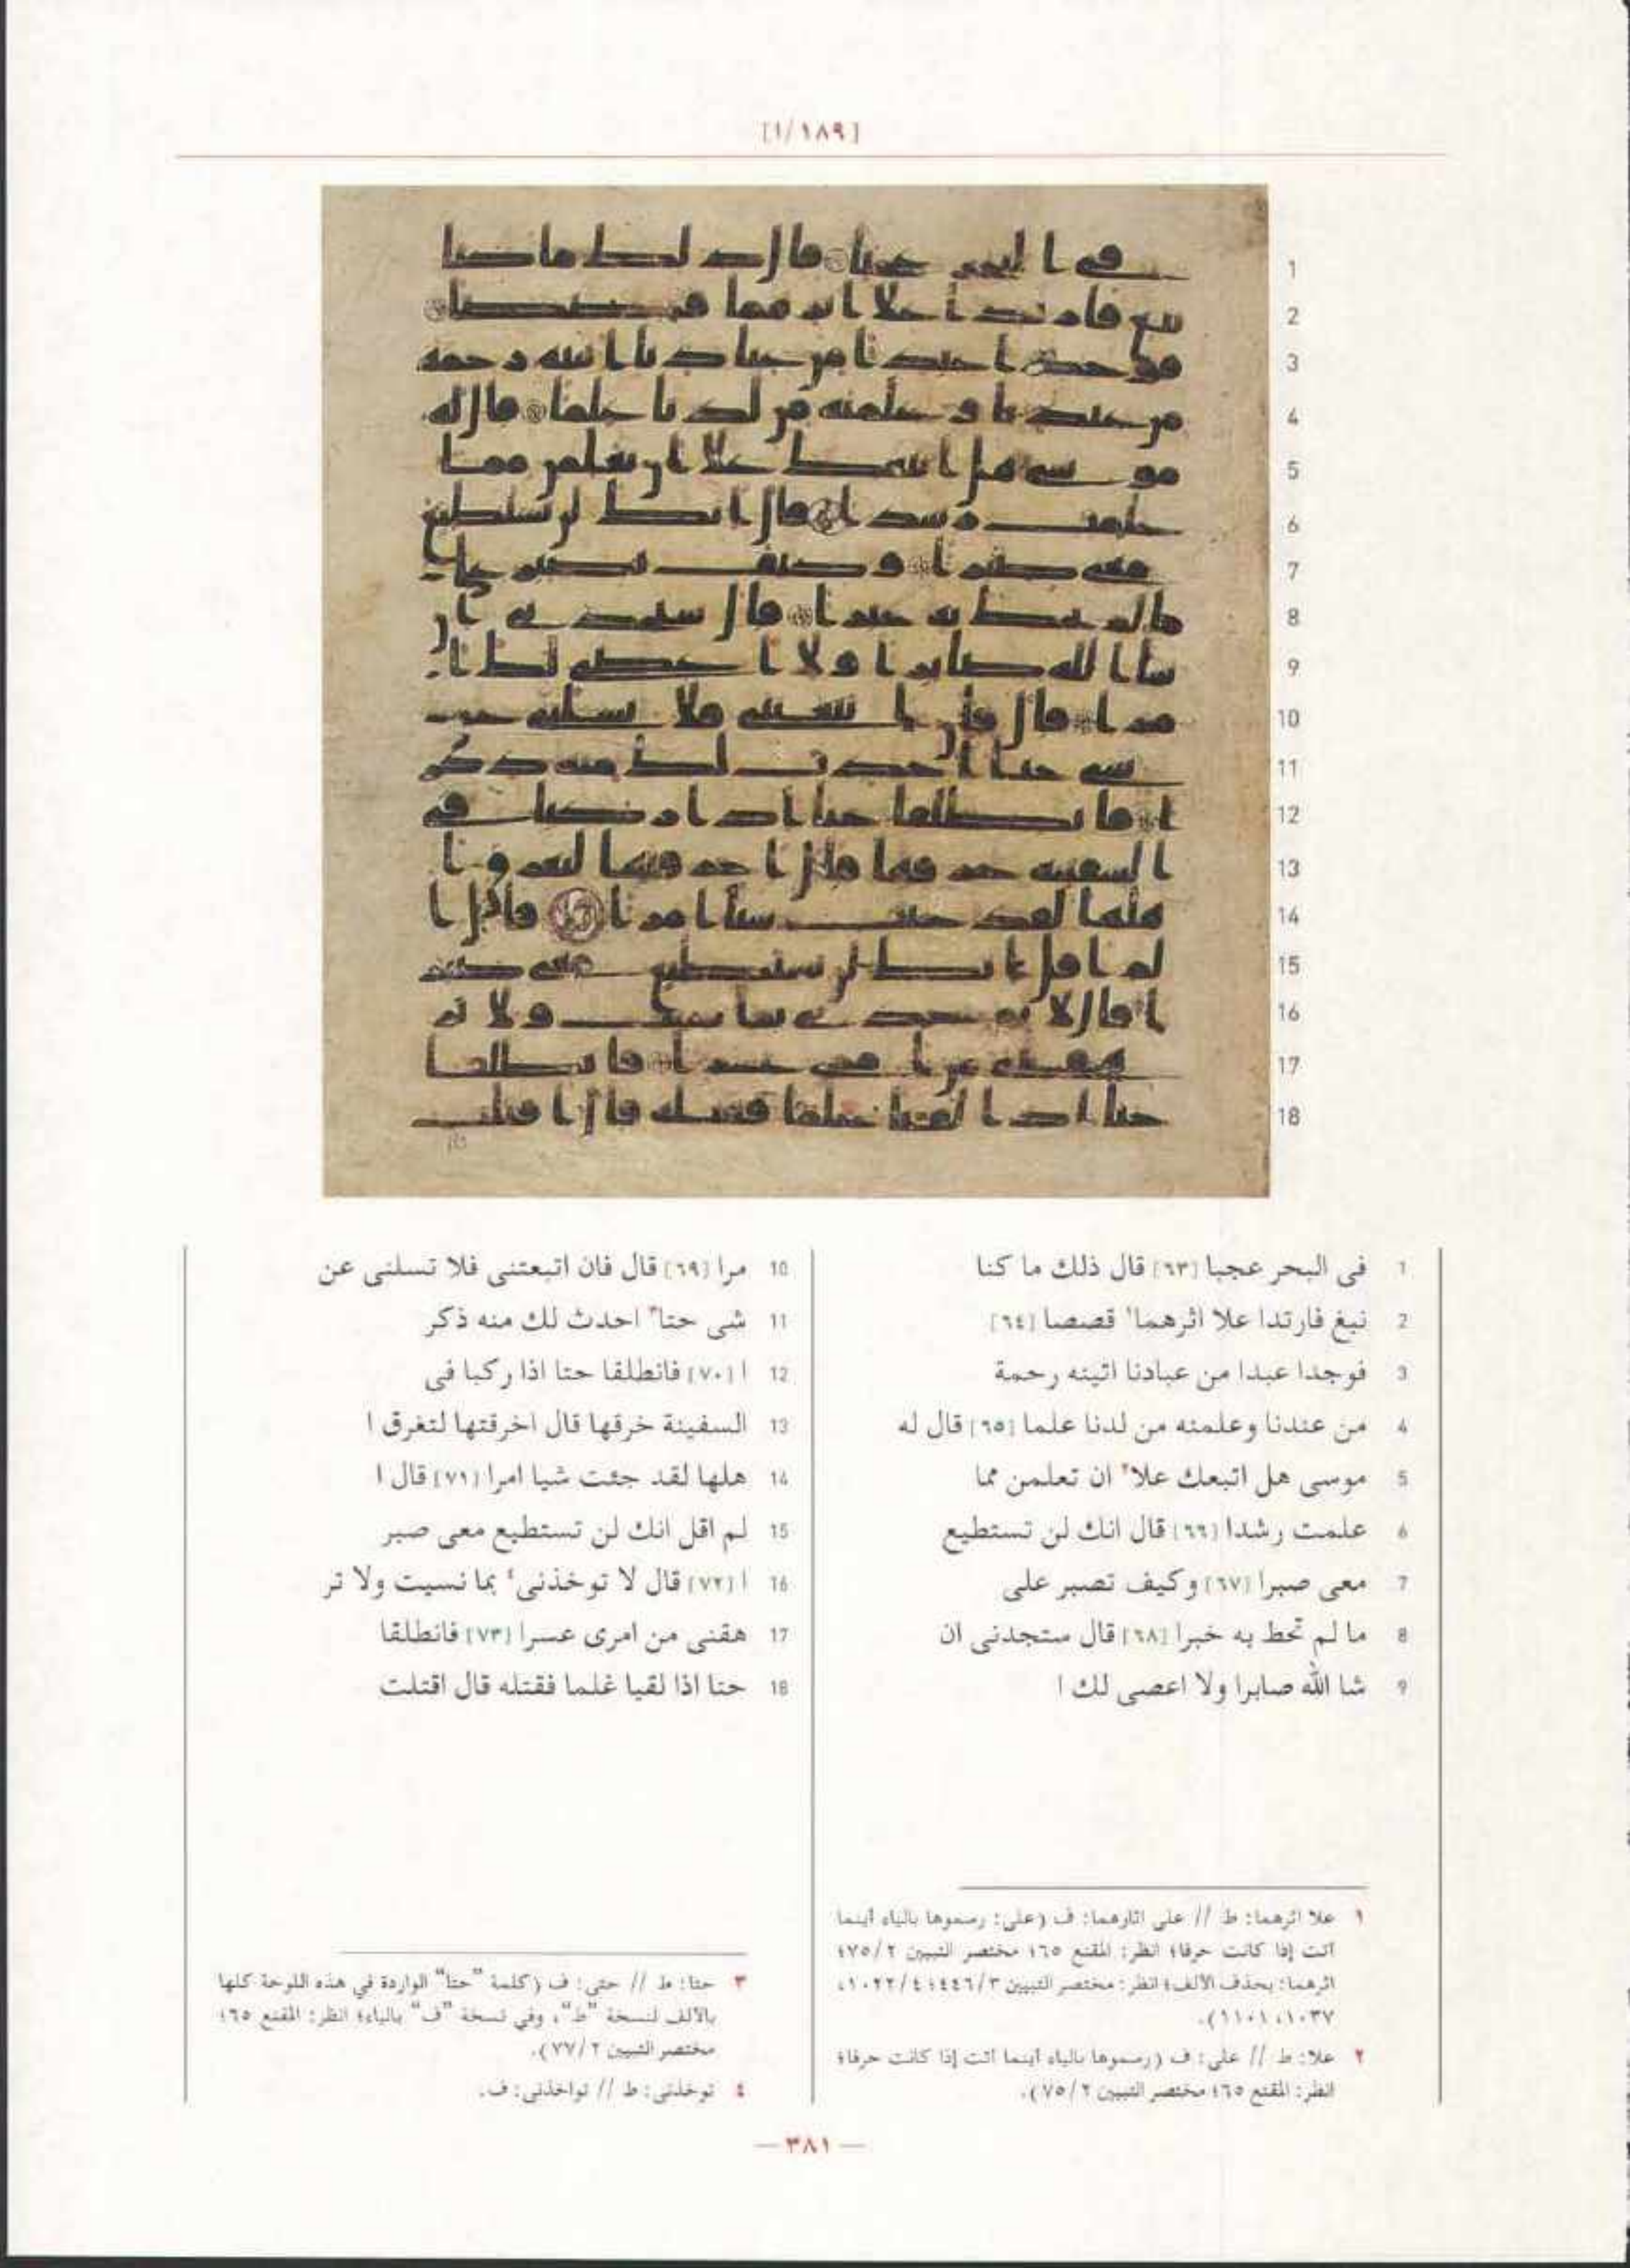 [١/١٨٩]
1 فى البحر عجبا [٦٣] قال ذلك ما كنا
2 نبغ فارتدا علا اثرهما١ قصصا [٦٤]
3 فوجدا عبدا من عبادنا اتينه رحمة
4 من عندنا وعلمنه من لدنا علما [٦٥] قال له
5 موسى هل اتبعك علا٢ ان تعلمن مما
6 علمت رشدا [٦٦] قال انك لن تستطيع
7 معى صبرا [٦٧] وكيف تصبر على
8 ما لم تحط به خبرا [٦٨] قال ستجدنى ان
9 شا الله صابرا ولا اعصى لك ا
10 مرا [٦٩] قال فان اتبعتنى فلا تسلنى عن
11 شى حتا٣ احدث لك منه ذكر
12 ا [٧٠] فانطلقا حتا اذا ركبا فى
13 السفينة خرقها قال اخرقتها لتغرق ا
14 هلها لقد جئت شيا امرا [٧١] قال ا
15 لم اقل انك لن تستطيع معى صبر
16 ا [٧٢] قال لا توخذنى٤ بما نسيت ولا تر
17 هقنى من امرى عسرا [٧٣] فانطلقا
18 حتا اذا لقيا غلما فقتله قال اقتلت
١ علا اثرهما: ط // على اثارهما: ف (على: رسموها بالياء أينما
أتت إذا كانت حرفا؛ انظر: المقنع ٦٥؛ مختصر التبيين ٧٥/٢؛
اثرهما: بحذف الألف؛ انظر: مختصر التبيين ٤٤٦/٣؛ ١٠٢٢/٤،
١٠٣٧، ١١٠١).
٢ علا: ط // على: ف (رسموها بالياء أينما أتت إذا كانت حرفا؛
انظر: المقنع ٦٥؛ مختصر التبيين ٧٥/٢).
٣ حتا: ط // حتى: ف (كلمة "حتا" الواردة في هذه اللوحة كلها
بالألف لنسخة "ط"، وفي نسخة "ف" بالياء؛ انظر: المقنع ٦٥؛
مختصر التبيين ٧٧/٢).
٤ توخذنى: ط // تواخذنى: ف.
— ٣٨١ —